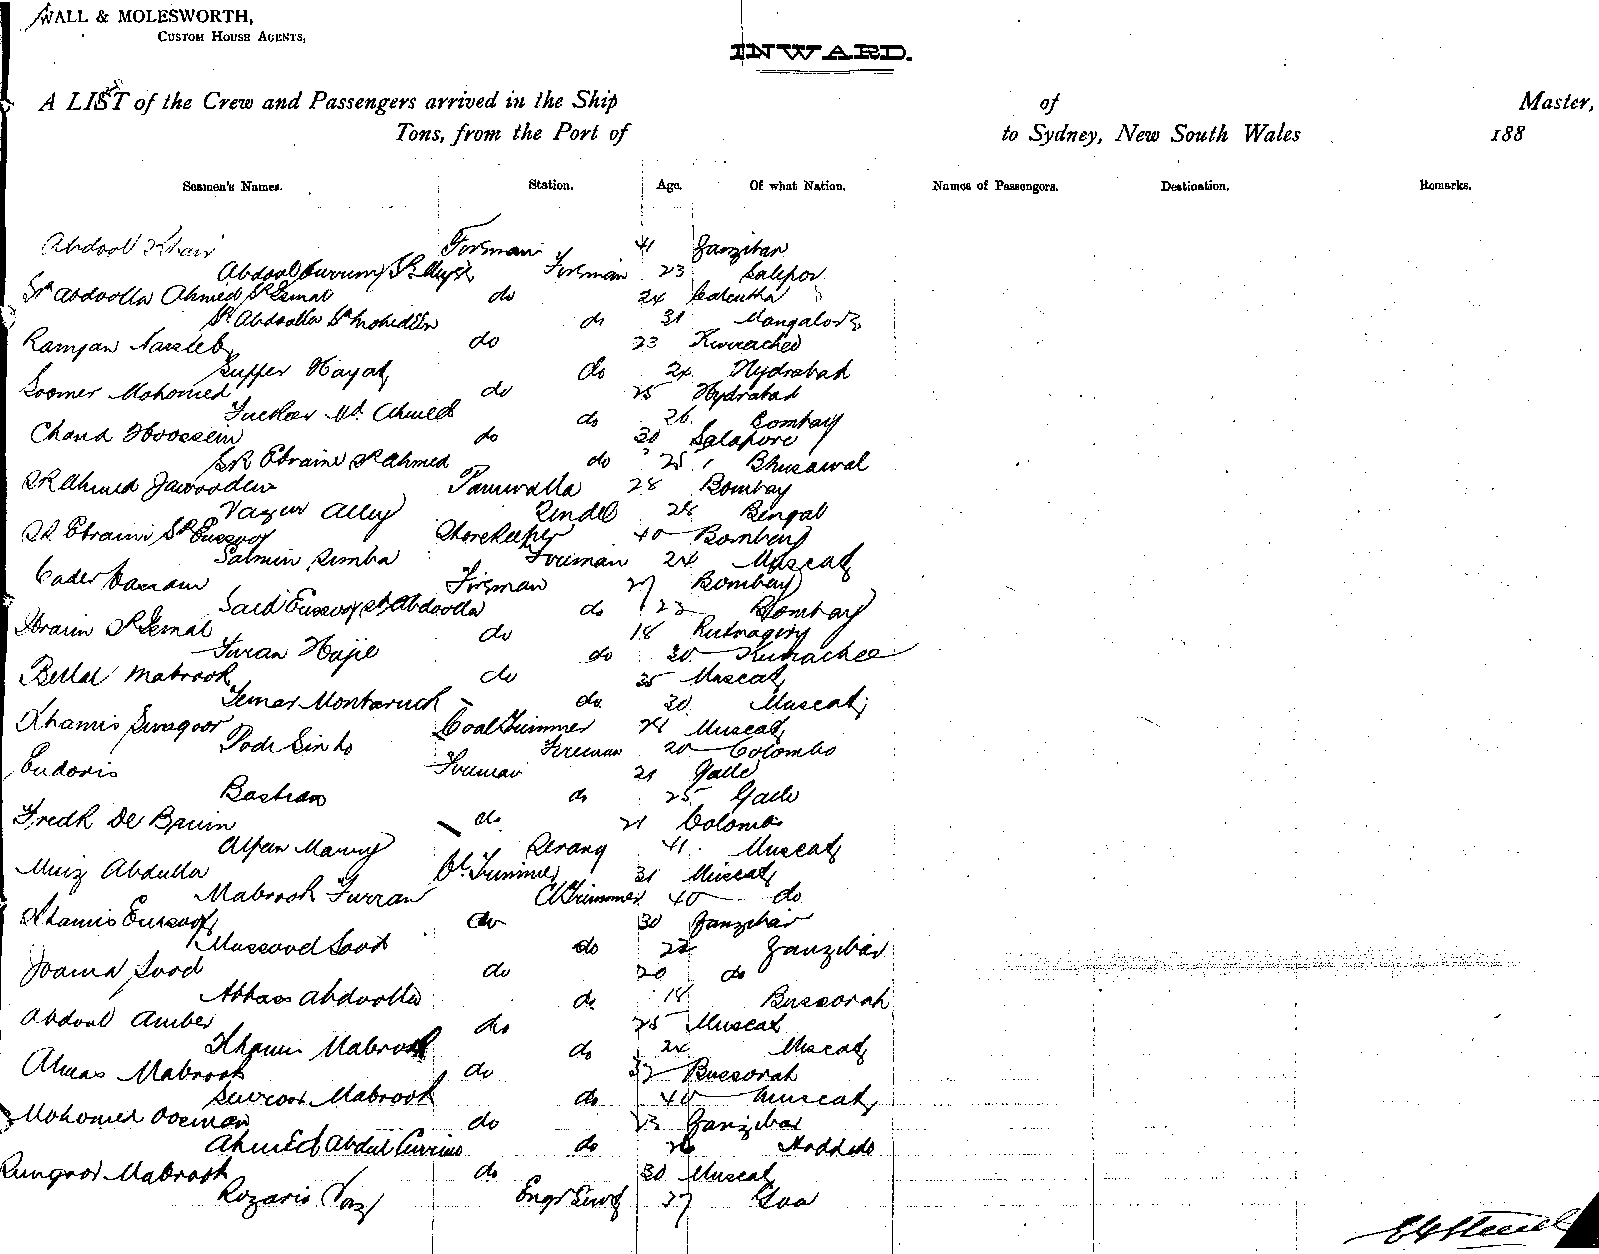 WALL & MOLESWORTH,
CUSTOM HOUSE AGENTS,
INWARD.
A LIST of the Crew and Passengers arrived in the Ship of Master,
Tons, from the Port of to Sydney, New South Wales 188
Seamen's Names. Station. Age. Of what Nation. Names of Passengers. Destination. Remarks.
Abdool Khair Fireman 41 Zanzibar
Abdool Fireman 23
Sk Abdoolla Ahmed Sk Esmal do 24 Calcutta
Sk Abdoolla Sk Mohideen do 31 Mangalore
Ramjan do 23 Kurrachee
Hayat do 24 Hydrabad
Soomer Mohomed do 25 Hydrabad
Md. Ahmed do 26 Bombay
Chand Hoossein do 30 Salapore
SK Ebraim Sk Ahmed do 25 Bhusawal
SK Ahmed 28 Bombay
Vazir Ally Tindel 28 Bengal
SK Ebraim Sk Eusoof Storekeeper 40 Bombay
Salmin Fireman 24 Muscat
Cader Fireman 27 Bombay
Said Eusoof Sk Abdoolla do 22 Bombay
Ebraim Sk Esmal do 18 Rutnagiry
Hajie do 20 Kurrachee
Bellal Mabrook do 35 Muscat
do 20 Muscat
Khamis Coal Trimmer 21 Muscat
Podi Sinho Fireman 20 Colombo
Fireman 21 Galle
Bastian do 25 Galle
Fredk De Bruin do 21 Colombo
Serang 41 Muscat
Abdulla Cl Trimmer 31 Muscat
Mabrook Furran Cl Trimmer 40 do
Khamis Eusoof do 30 Zanzibar
Mussood Sood do 22 Zanzibar
Jooma Sood do 20 do
Abbass Abdoolla do 18 Bussorah
Abdool Amber do 25 Muscat
Khamis Mabrook do 24 Muscat
Almas Mabrook do 37 Bussorah
Suroor Mabrook do 40 Muscat
Mohomed Oosman do 23 Zanzibar
Ahmed Abdul do 26
Mabrook do 30 Muscat
Rozario Vaz Engr Servt 37 Goa